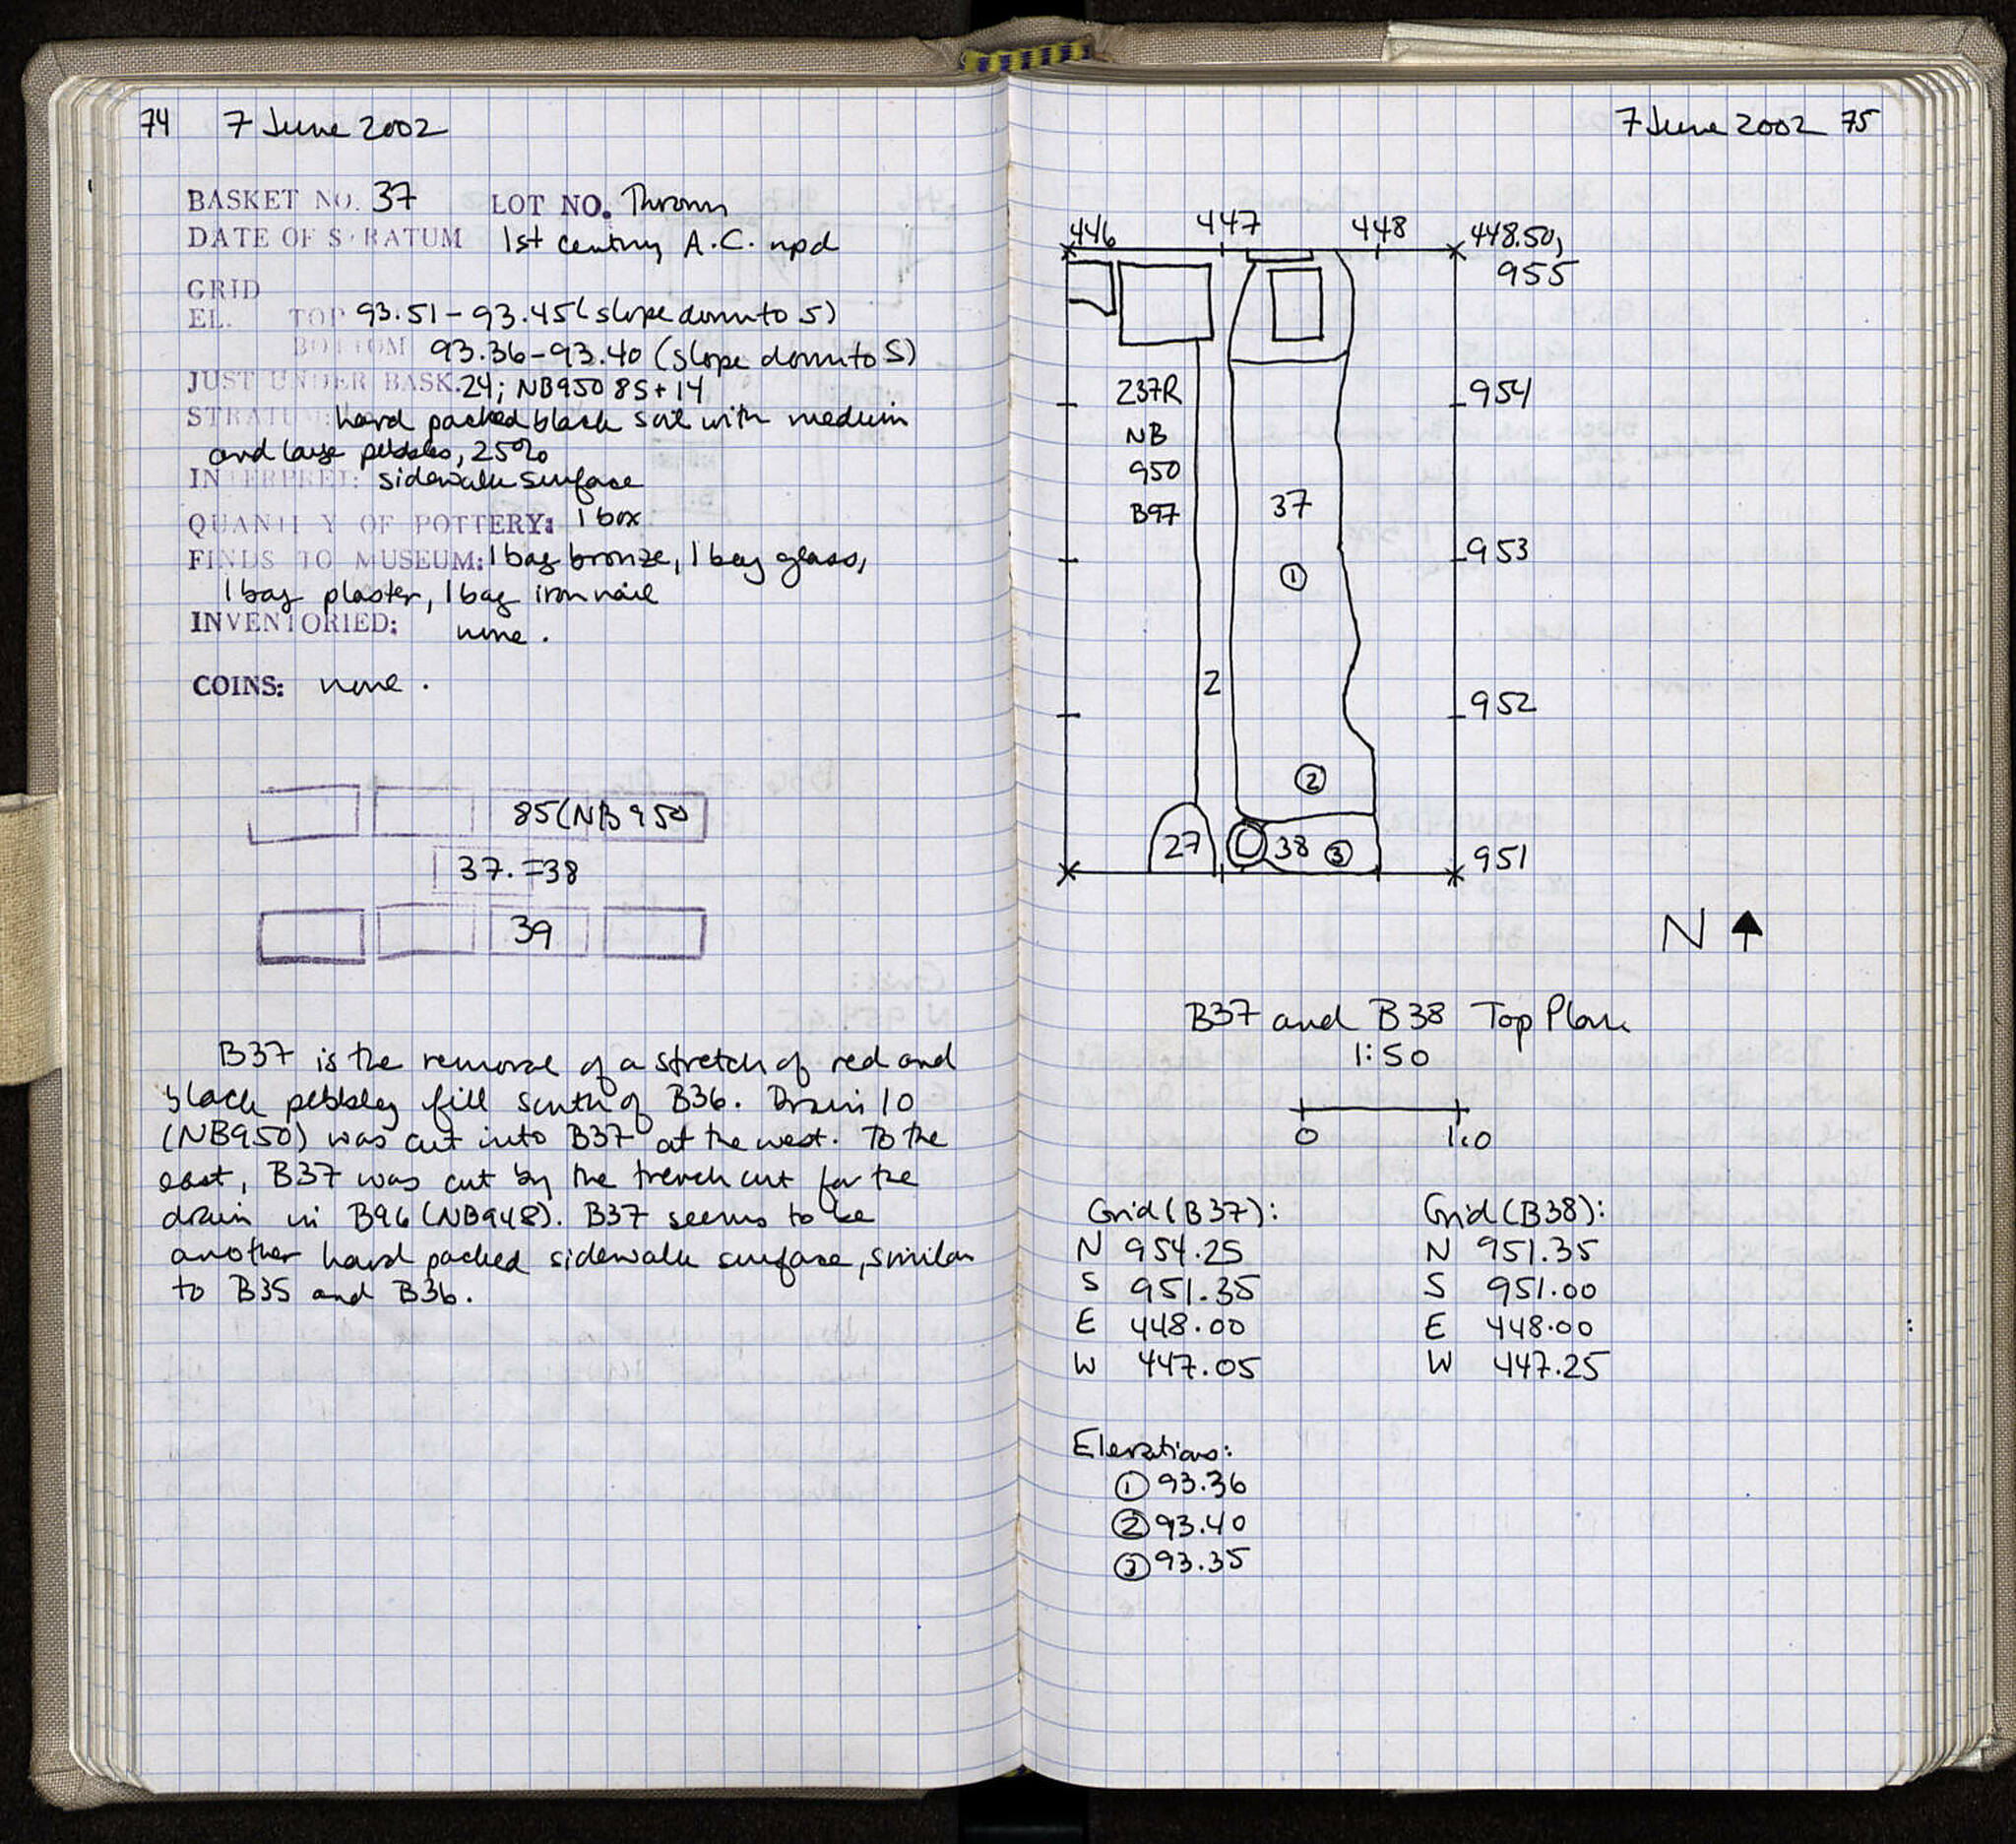 74 7 June 2002
BASKET NO. 37 LOT NO. Thrown
DATE OF STRATUM 1st century A.C. npd
GRID
EL. TOP 93.51-93.45 (slope down to S)
BOTTOM 93.36-93.40 (slope down to S)
JUST UNDER BASK. 24; NB950 85+14
STRATUM: hard packed black soil with medium
and large pebbles, 25%
INTERPRET: sidewalk surface
QUANTITY OF POTTERY: 1 box
FINDS TO MUSEUM: 1 bag bronze, 1 bag glass,
1 bag plaster, 1 bag iron nail
INVENTORIED: none.
COINS: none.
85(NB950
37.=38
39
B37 is the removal of a stretch of red and
black pebbley fill south of B36. Drain 10
(NB950) was cut into B37 at the west. To the
east, B37 was cut by the trench cut for the
drain in B96 (NB948). B37 seems to be
another hard packed sidewalk surface, similar
to B35 and B36.
7 June 2002 75
446 447 448 448.50,
955
237R
NB
950
B97
954
37
953
①
2
952
②
27 38 ③
951
N
B37 and B38 Top Plan
1:50
0 1.0
Grid (B37):
N 954.25
S 951.35
E 448.00
W 447.05
Grid (B38):
N 951.35
S 951.00
E 448.00
W 447.25
Elevations:
① 93.36
② 93.40
③ 93.35